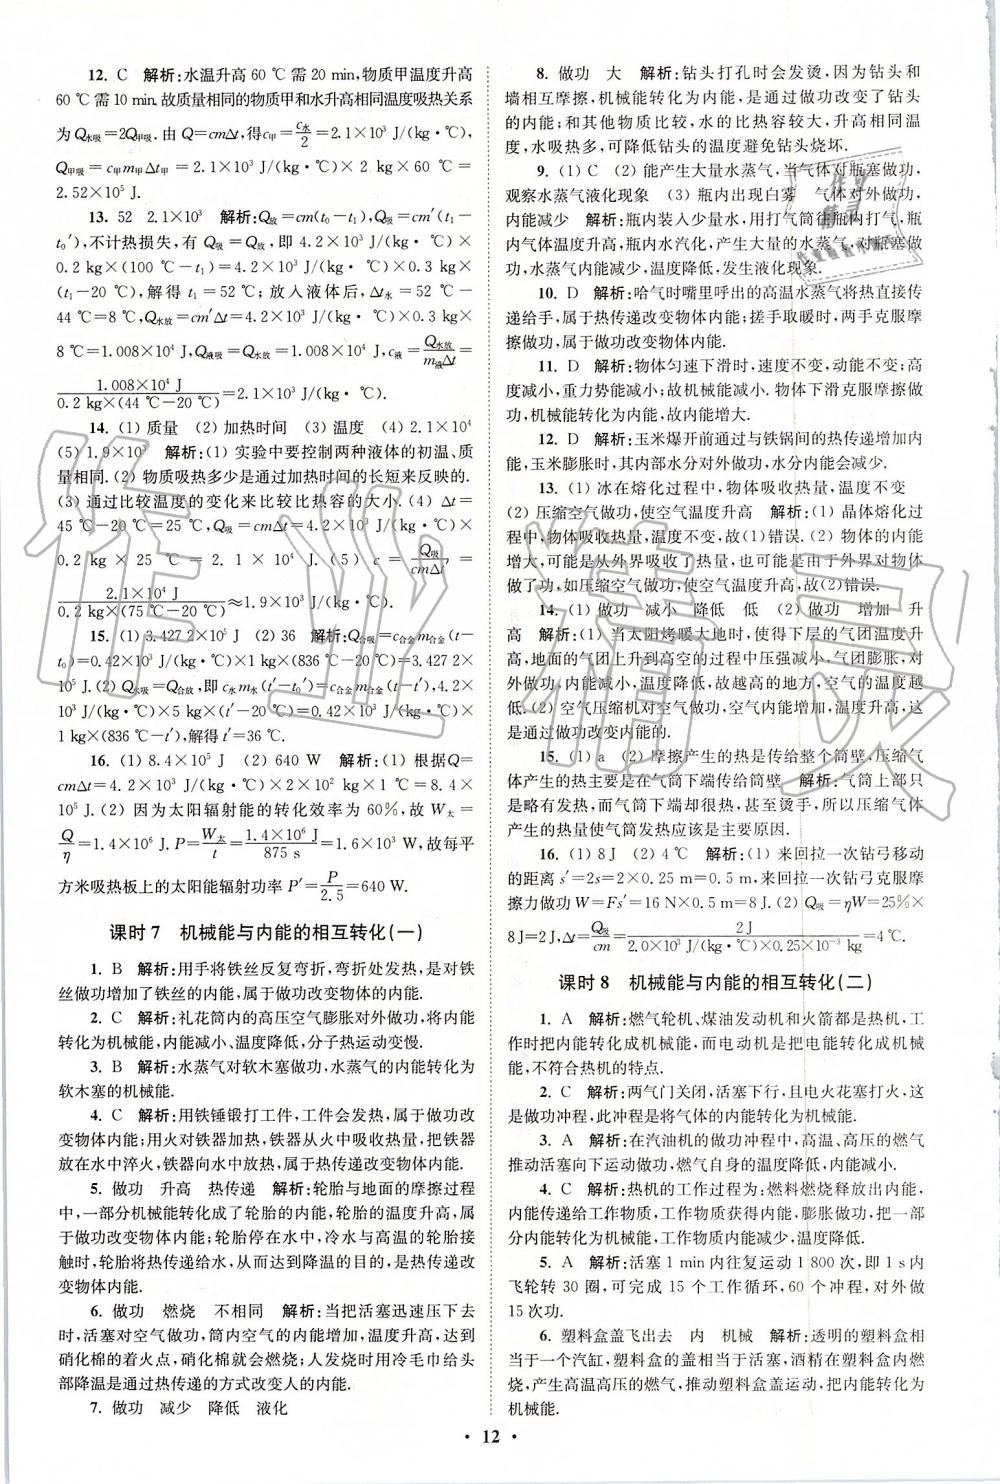 12. C　解析:水温升高 60 ℃需 20 min,物质甲温度升高
60 ℃需10 min.故质量相同的物质甲和水升高相同温度吸热关系
为 Q水吸=2Q甲吸.由 Q=cmΔt,得c甲=c水/2=2.1×10³ J/(kg·℃),
Q甲吸=c甲m甲Δt甲=2.1×10³ J/(kg·℃)×2 kg×60 ℃=
2.52×10⁵ J.
13. 52　2.1×10³　解析:Q放=cm(t₀-t₁),Q吸=cm′(t₁-
t₀′),不计热损失,有 Q吸=Q放,即 4.2×10³ J/(kg·℃)×
0.2 kg×(100 ℃-t₁)=4.2×10³ J/(kg·℃)×0.3 kg×
(t₁-20 ℃),解得 t₁=52 ℃;放入液体后,Δt水=52 ℃-
44 ℃=8 ℃,Q水放=cm′Δt=4.2×10³ J/(kg·℃)×0.3 kg×
8 ℃=1.008×10⁴ J,Q液吸=Q水放=1.008×10⁴ J,c液=Q水放/m液Δt=
1.008×10⁴ J/0.2 kg×(44 ℃-20 ℃)=2.1×10³ J/(kg·℃).
14. (1) 质量　(2) 加热时间　(3) 温度　(4) 2.1×10⁴
(5) 1.9×10³　解析:(1) 实验中要控制两种液体的初温、质
量相同.(2) 物质吸热多少是通过加热时间的长短来反映的.
(3) 通过比较温度的变化来比较比热容的大小.(4) Δt=
45 ℃-20 ℃=25 ℃,Q吸=cmΔt=4.2×10³ J/(kg·℃)×
0.2 kg×25 ℃=2.1×10⁴ J.(5) c=Q吸/cmΔt=
2.1×10⁴ J/0.2 kg×(75 ℃-20 ℃)≈1.9×10³ J/(kg·℃).
15. (1) 3.427 2×10⁵ J　(2) 36　解析:Q合吸=c合金m合金(t-
t₀)=0.42×10³ J/(kg·℃)×1 kg×(836 ℃-20 ℃)=3.427 2×
10⁵ J.(2) Q水吸=Q合放,即c水m水(t′-t₀′)=c合金m合金(t-t′),4.2×
10³ J/(kg·℃)×5 kg×(t′-20 ℃)=0.42×10³ J/(kg·℃)×
1 kg×(836 ℃-t′),解得 t′=36 ℃.
16. (1) 8.4×10⁵ J　(2) 640 W　解析:(1) 根据Q=
cmΔt=4.2×10³ J/(kg·℃)×2×10² kg×1 ℃=8.4×
10⁵ J.(2) 因为太阳辐射能的转化效率为 60%,故 W太=
Q/η=1.4×10⁶ J.P=W太/t=1.4×10⁶ J/875 s=1.6×10³ W,故每平
方米吸热板上的太阳能辐射功率 P′=P/2.5=640 W.
课时 7　机械能与内能的相互转化(一)
1. B　解析:用手将铁丝反复弯折,弯折处发热,是对铁
丝做功增加了铁丝的内能,属于做功改变物体的内能.
2. C　解析:礼花筒内的高压空气膨胀对外做功,将内能
转化为机械能,内能减小、温度降低,分子热运动变慢.
3. B　解析:水蒸气对软木塞做功,水蒸气的内能转化为
软木塞的机械能.
4. C　解析:用铁锤锻打工件,工件会发热,属于做功改
变物体内能;用火对铁器加热,铁器从火中吸收热量,把铁器
放在水中淬火,铁器向水中放热,属于热传递改变物体内能.
5. 做功　升高　热传递　解析:轮胎与地面的摩擦过程
中,一部分机械能转化成了轮胎的内能,轮胎的温度升高,属
于做功改变物体内能;轮胎停在水中,冷水与高温的轮胎接
触时,轮胎将热传递给水,从而达到降温的目的,是热传递改
变物体内能.
6. 做功　燃烧　不相同　解析:当把活塞迅速压下去
时,活塞对空气做功,筒内空气的内能增加,温度升高,达到
硝化棉的着火点,硝化棉就会燃烧;人发烧时用冷毛巾给头
部降温是通过热传递的方式改变人的内能.
7. 做功　减少　降低　液化
8. 做功　大　解析:钻头打孔时会发烫,因为钻头和
墙相互摩擦,机械能转化为内能,是通过做功改变了钻头
的内能;和其他物质比较,水的比热容较大,升高相同温
度,水吸热多,可降低钻头的温度避免钻头烧坏.
9. (1) C　(2) 能产生大量水蒸气,当气体对瓶塞做功,
观察水蒸气液化现象　(3) 瓶内出现白雾　气体对外做功,
内能减少　解析:瓶内装入少量水,用打气筒往瓶内打气,瓶
内气体温度升高,瓶内水汽化,产生大量的水蒸气,对瓶塞做
功,水蒸气内能减少,温度降低,发生液化现象.
10. D　解析:哈气时嘴里呼出的高温水蒸气将热直接传
递给手,属于热传递改变物体内能;搓手取暖时,两手克服摩擦
做功,属于做功改变物体内能.
11. D　解析:物体匀速下滑时,速度不变,动能不变;高
度减小,重力势能减小;故机械能减小.物体下滑克服摩擦做
功,机械能转化为内能,故内能增大.
12. D　解析:玉米爆开前通过与铁锅间的热传递增加内
能,玉米膨胀时,其内部水分对外做功,水分内能会减少.
13. (1) 冰在熔化过程中,物体吸收热量,温度不变
(2) 压缩空气做功,使空气温度升高　解析:(1) 晶体熔化过
程中,不断吸收热量,温度不变,故(1)错误.(2) 物体的内能
增大,可能是从外界吸收了热量,也可能是由于外界对物体
做了功,如压缩空气做功,使空气温度升高,故(2)错误.
14. (1) 做功　减小　降低　低　(2) 做功　增加　升
高　解析:(1) 当太阳烤暖大地时,使得下层的气团温度升
高,地面的气团上升到高空的过程中压强减小,气团膨胀,对
外做功,内能减小,温度降低,故越高的地方,空气的温度越
低.(2) 空气压缩机对空气做功,空气内能增加,温度升高,这
是通过做功改变内能的.
15. (1) a　(2) 摩擦产生的热是传给整个筒壁,压缩气
体产生的热主要是在气筒下端传给筒壁　解析:气筒上部只
是略有发热,而气筒下端却很热,甚至烫手,所以压缩气体
产生的热量使气筒发热应该是主要原因.
16. (1) 8 J　(2) 4 ℃　解析:(1) 来回拉一次钻弓移动
的距离 s′=2s=2×0.25 m=0.5 m,来回拉一次钻弓克服摩
擦力做功 W=Fs′=16 N×0.5 m=8 J.(2) Q吸=ηW=25%×
8 J=2 J,Δt=Q吸/cm=2 J/2.0×10³ J/(kg·℃)×0.25×10⁻³ kg=4 ℃.
课时 8　机械能与内能的相互转化(二)
1. A　解析:燃气轮机、煤油发动机和火箭都是热机,工
作时把内能转化成机械能,而电动机是把电能转化成机械
能,不符合热机的特点.
2. C　解析:两气门关闭,活塞下行,且电火花塞打火,这
是做功冲程,此冲程是将气体的内能转化为机械能.
3. A　解析:在汽油机的做功冲程中,高温、高压的燃气
推动活塞向下运动做功,燃气自身的温度降低,内能减小.
4. C　解析:热机的工作过程为:燃料燃烧释放出内能,
内能传递给工作物质,工作物质获得内能,膨胀做功,把一部
分内能转化为机械能,工作物质内能减少,温度降低.
5. A　解析:活塞 1 min 内往复运动 1 800 次,即 1 s 内
飞轮转 30 圈,可完成 15 个工作循环,60 个冲程,对外做
15 次功.
6. 塑料盒盖飞出去　内　机械　解析:透明的塑料盒相
当于一个汽缸,塑料盒的盖相当于活塞,酒精在塑料盒内燃
烧,产生高温高压的燃气,推动塑料盒盖运动,把内能转化为
机械能.
· 12 ·
作业精灵